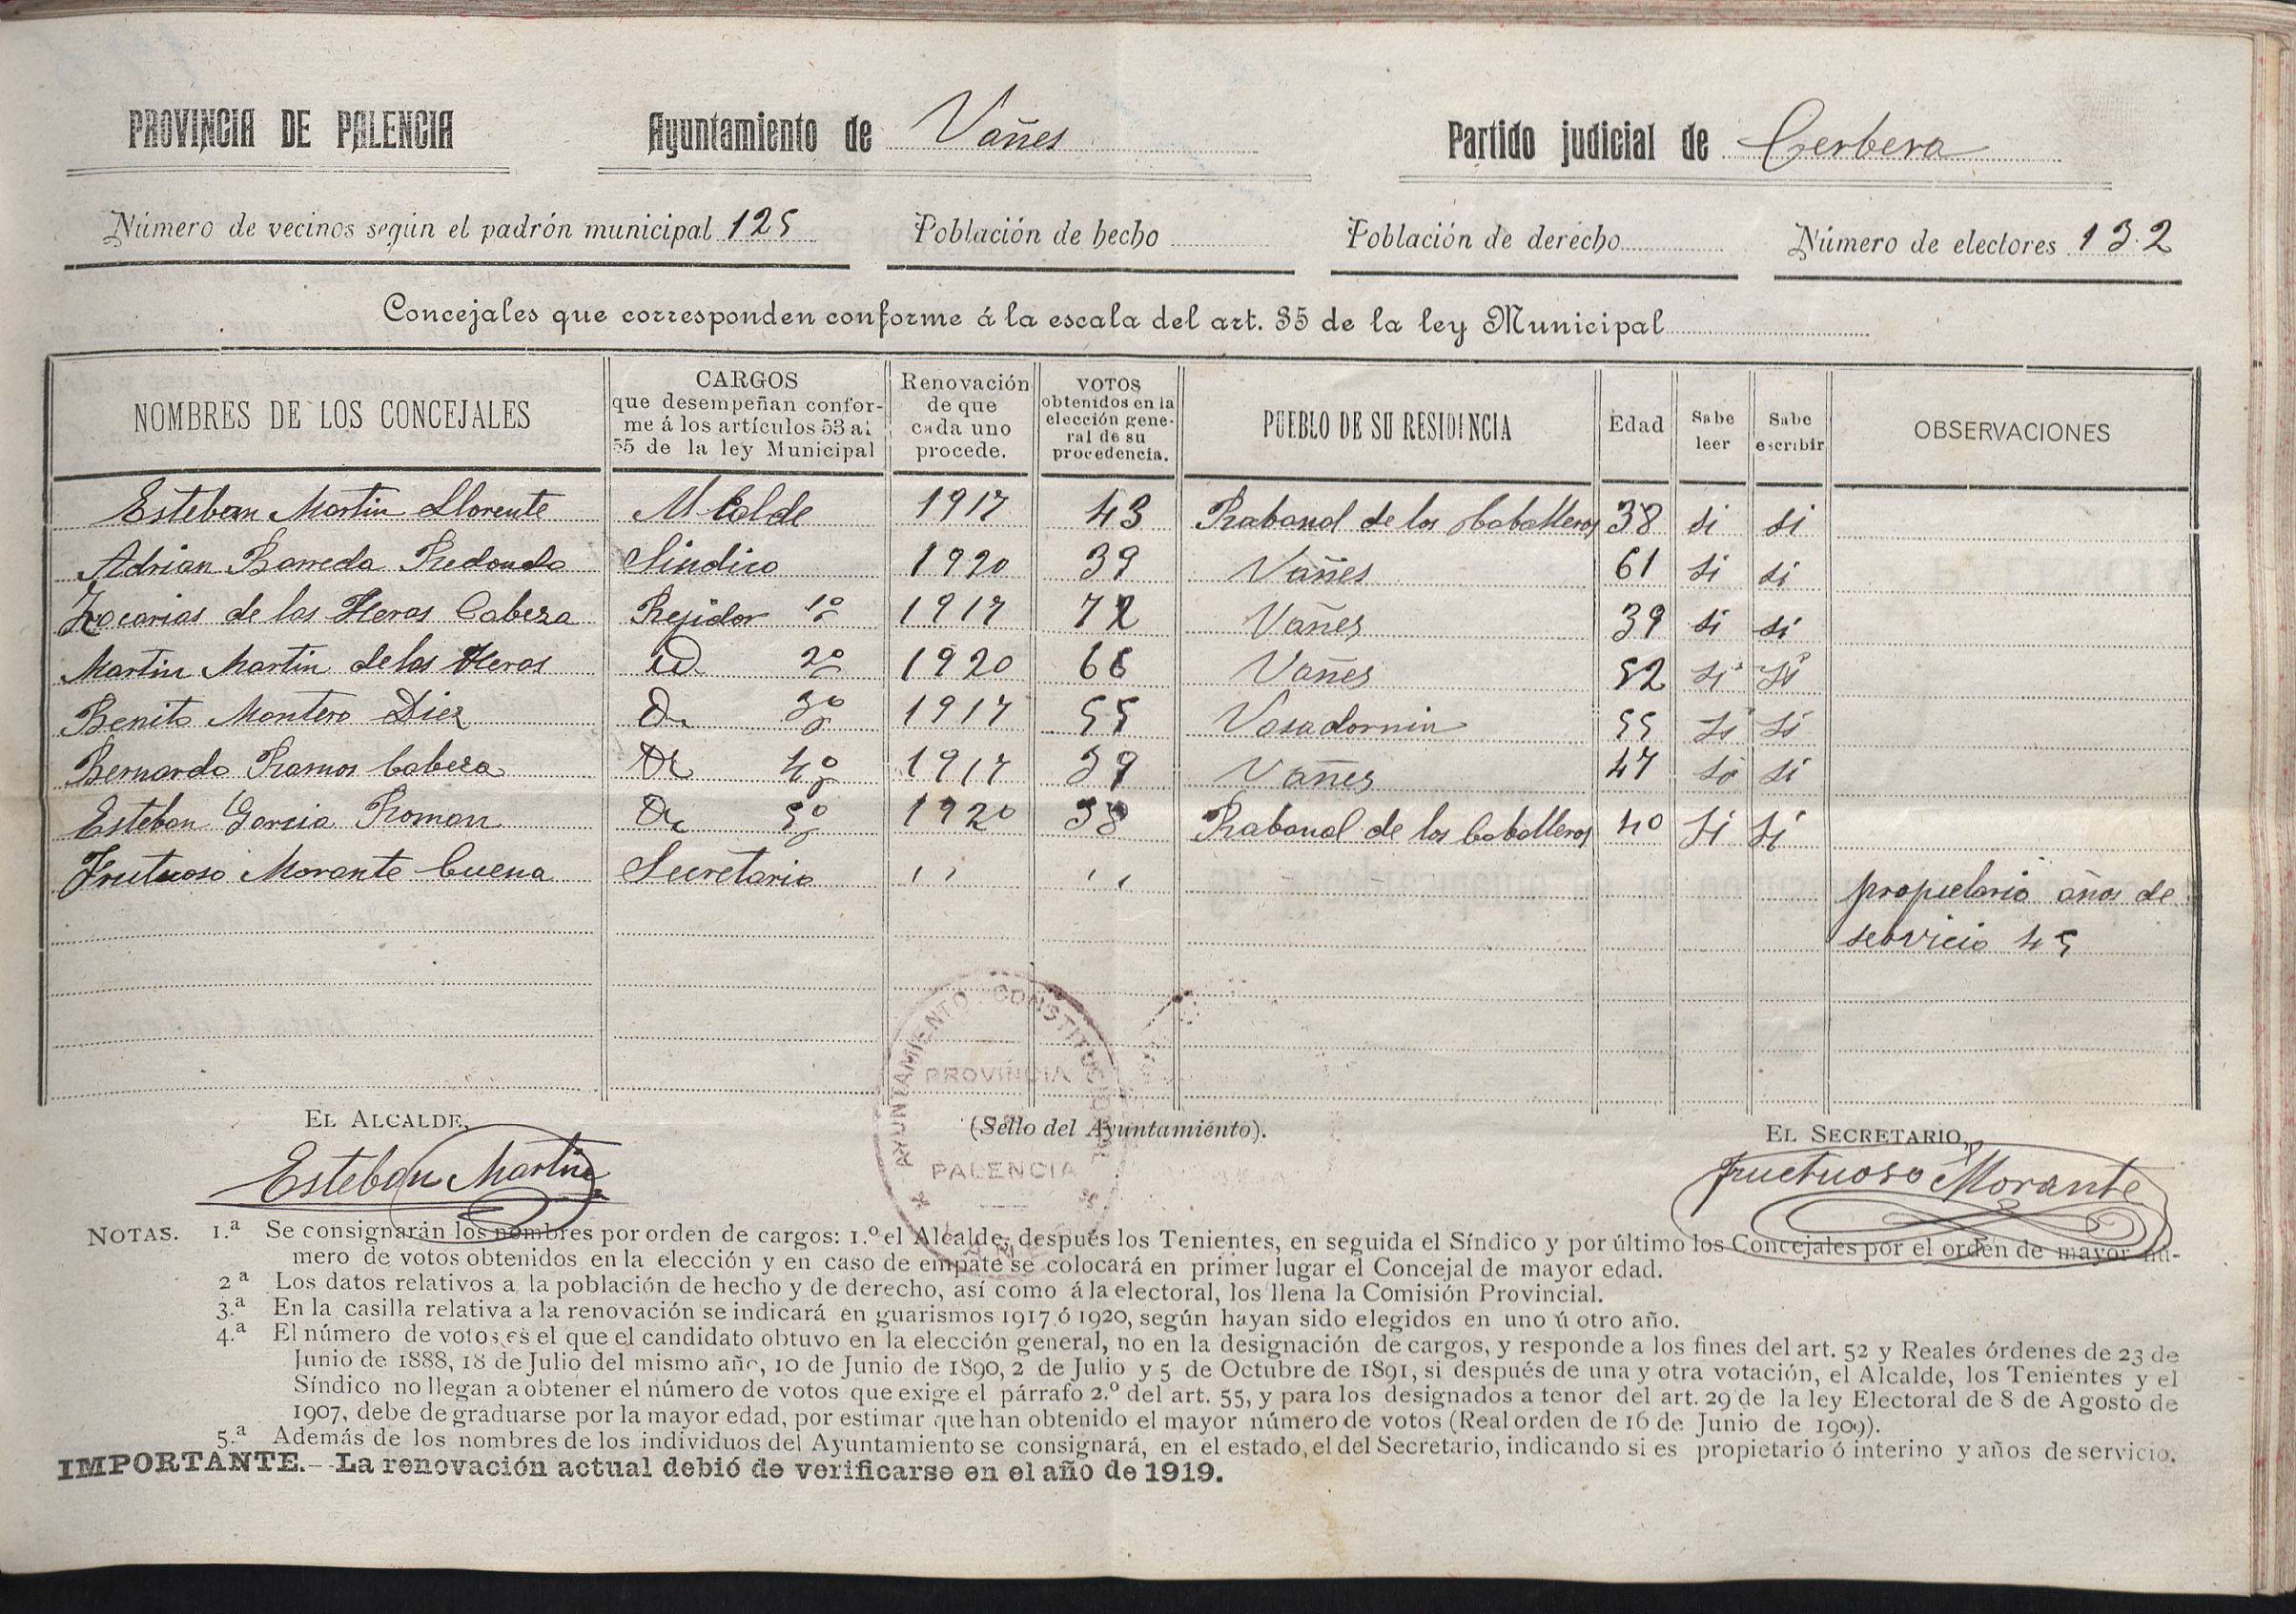 PROVINCIA DE PALENCIA Ayuntamiento de Vañes Partido judicial de Cerbera
Número de vecinos según el padrón municipal 125 Población de hecho Población de derecho Número de electores 132
Concejales que corresponden conforme á la escala del art. 35 de la ley Municipal
NOMBRES DE LOS CONCEJALES
CARGOS
que desempeñan confor-
me á los artículos 53 al
55 de la ley Municipal
Renovación
de que
cada uno
procede.
VOTOS
obtenidos en la
elección gene-
ral de su
procedencia.
PUEBLO DE SU RESIDENCIA
Edad
Sabe
leer
Sabe
escribir
OBSERVACIONES
Esteban Martin Llorente Alcalde 1917 43 Rabanal de los Caballeros 38 si si
Adrian Barreda Redondo Sindico 1920 39 Vañes 61 si si
Zacarias de las Heras Cabeza Rejidor 1º 1917 72 Vañes 39 si si
Martin Martin de las Heras id 2º 1920 66 Vañes 52 si si
Benito Montero Diez 3º 1917 55 Vasadornin 55 si si
Bernardo Ramos Cabeza 4º 1917 39 Vañes 47 si si
Esteban Garcia Roman 5º 1920 38 Rabanal de los Caballeros 40 si si
Frutuoso Morante Cuena Secretario ,, ,, propietario años de
servicio 45
EL ALCALDE, (Sello del Ayuntamiento). EL SECRETARIO,
Esteban Martin Fructuoso Morante
AYUNTAMIENTO CONSTITUCIONAL
PROVINCIA
PALENCIA
NOTAS. 1.ª Se consignarán los nombres por orden de cargos: 1.º el Alcalde, después los Tenientes, en seguida el Síndico y por último los Concejales por el orden de mayor nú-
mero de votos obtenidos en la elección y en caso de empate se colocará en primer lugar el Concejal de mayor edad.
2ª Los datos relativos a la población de hecho y de derecho, así como á la electoral, los llena la Comisión Provincial.
3.ª En la casilla relativa a la renovación se indicará en guarismos 1917 ó 1920, según hayan sido elegidos en uno ú otro año.
4.ª El número de votos es el que el candidato obtuvo en la elección general, no en la designación de cargos, y responde a los fines del art. 52 y Reales órdenes de 23 de
Junio de 1888, 18 de Julio del mismo año, 10 de Junio de 1890, 2 de Julio y 5 de Octubre de 1891, si después de una y otra votación, el Alcalde, los Tenientes y el
Síndico no llegan a obtener el número de votos que exige el párrafo 2.º del art. 55, y para los designados a tenor del art. 29 de la ley Electoral de 8 de Agosto de
1907, debe de graduarse por la mayor edad, por estimar que han obtenido el mayor número de votos (Real orden de 16 de Junio de 1909).
5.ª Además de los nombres de los individuos del Ayuntamiento se consignará, en el estado, el del Secretario, indicando si es propietario ó interino y años de servicio.
IMPORTANTE.—La renovación actual debió de verificarse en el año de 1919.